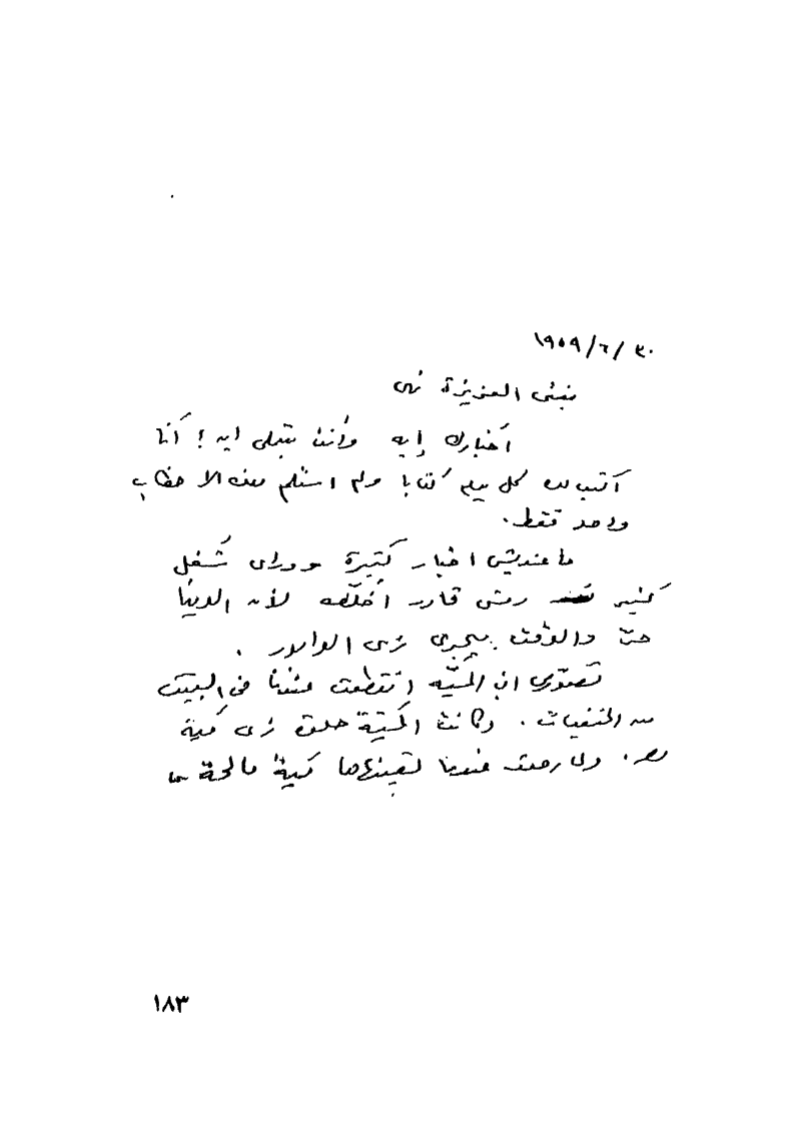 ٣٠/٦/١٩٥٩
بنتى العزيزة نهى
أخبارك إيه وأنت بتعملى ايه ! أنا
أكتب لك كل يوم كتابا ولم استلم منك الا خطاب
واحد فقط.
ما عنديش اخبار كتيرة وورايا شغل
كتير ومش قادر أخلصه لأن الدنيا
حر والوقت بيجرى زى الوابور .
تصورى ان الميّه انقطعت عندنا فى البيت
من الحنفيات . وكانت الميّة حلوة زى ميّة
مصر . ولما رجعت عندنا لقيناها ميّة مالحة
١٨٣